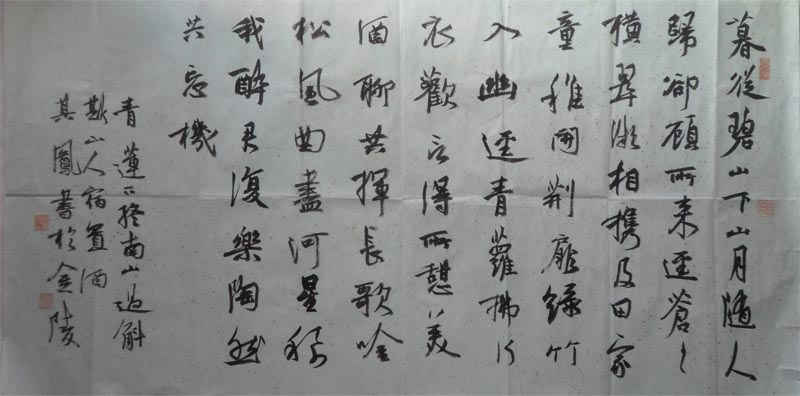 暮從碧山下山月隨人
歸卻顧所来逕蒼々
横翠微相携及田家
童稚開荆扉緑竹
入幽逕青蘿拂行
衣歡言得所憩美
酒聊共揮長歌吟
松風曲盡河星稀
我醉君復樂陶然
共忘機
青蓮下終南山過斛
斯山人宿置酒
其鳳書於金陵